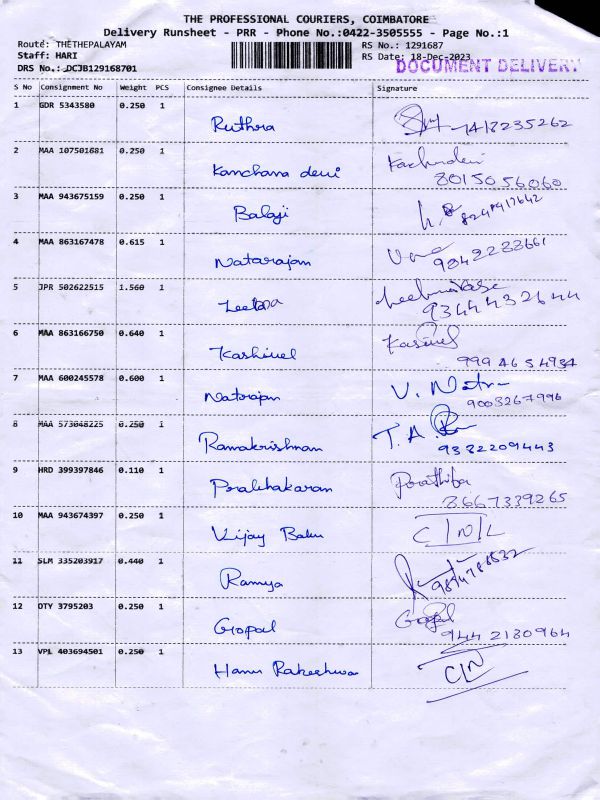 THE PROFESSIONAL COURIERS, COIMBATORE
Delivery Runsheet - PRR - Phone No.:0422-3505555 - Page No.:1
Route: THETHEPALAYAM RS No.: 1291687
Staff: HARI RS Date: 18-Dec-2023
DRS No.: DCJB129168701 DOCUMENT DELIVERY
S No Consignment No Weight PCS Consignee Details Signature
1 GDR 5343580 0.250 1
Ruthra 7418235262
2 MAA 107501681 0.250 1
Kanchana devi
8015056060
3 MAA 943675159 0.250 1
Balaji
4 MAA 863167478 0.615 1
Natarajan
5 JPR 502622515 1.560 1
9344432644
6 MAA 863166750 0.640 1
7 MAA 600245578 0.600 1
Natarajan V. Natr
9003267996
8 MAA 573048225 0.250 1
Ramakrishnan T. A.
9382209443
9 HRD 399397846 0.110 1
Prabhakaran Prathiba
8667339265
10 MAA 943674397 0.250 1
Vijay Babu C/N/L
11 SLM 335203917 0.440 1
Ramya
12 OTY 3795203 0.250 1
Gopal Gopal
9442130964
13 VPL 403694501 0.250 1
C/N